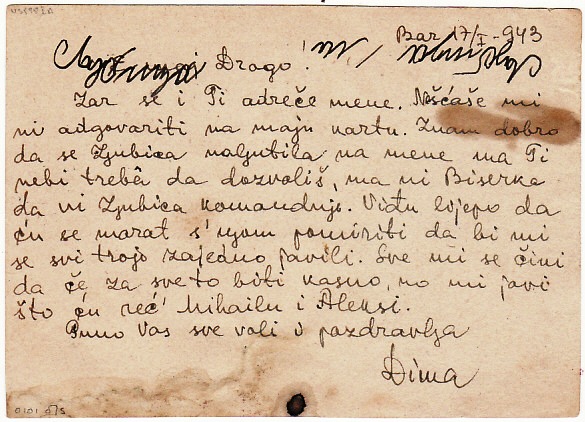 Bar 17/I - 943
Drago!
Zar se i Ti adreče mene. Nšćaše mi
ni adgovariti na maju kartu. Znam dobro
da se Ljubica naljutila na mene ma Ti
nebi trebâ da dozvoliš, ma ni Biserka
da vi Ljubica komanduje. Viđu lijepo da
ću se marat s'njom pomiriti da bi mi
se svi trojo zajedno javili. Sve mi se čini
da če za sve to biti kasno, no mi javi
što ću reć Mihailu i Aleksi.
Puno Vas sve voli i pazdravlja
Dima